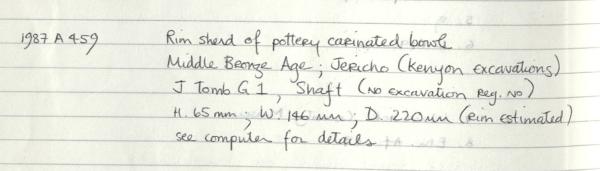 1987 A 459 Rim sherd of pottery carinated bowl
Middle Bronze Age; Jericho (Kenyon excavations)
J Tomb G 1, Shaft (No excavation Reg. no)
H. 65 mm; W. 146 mm; D. 220 mm (rim estimated)
see computer for details